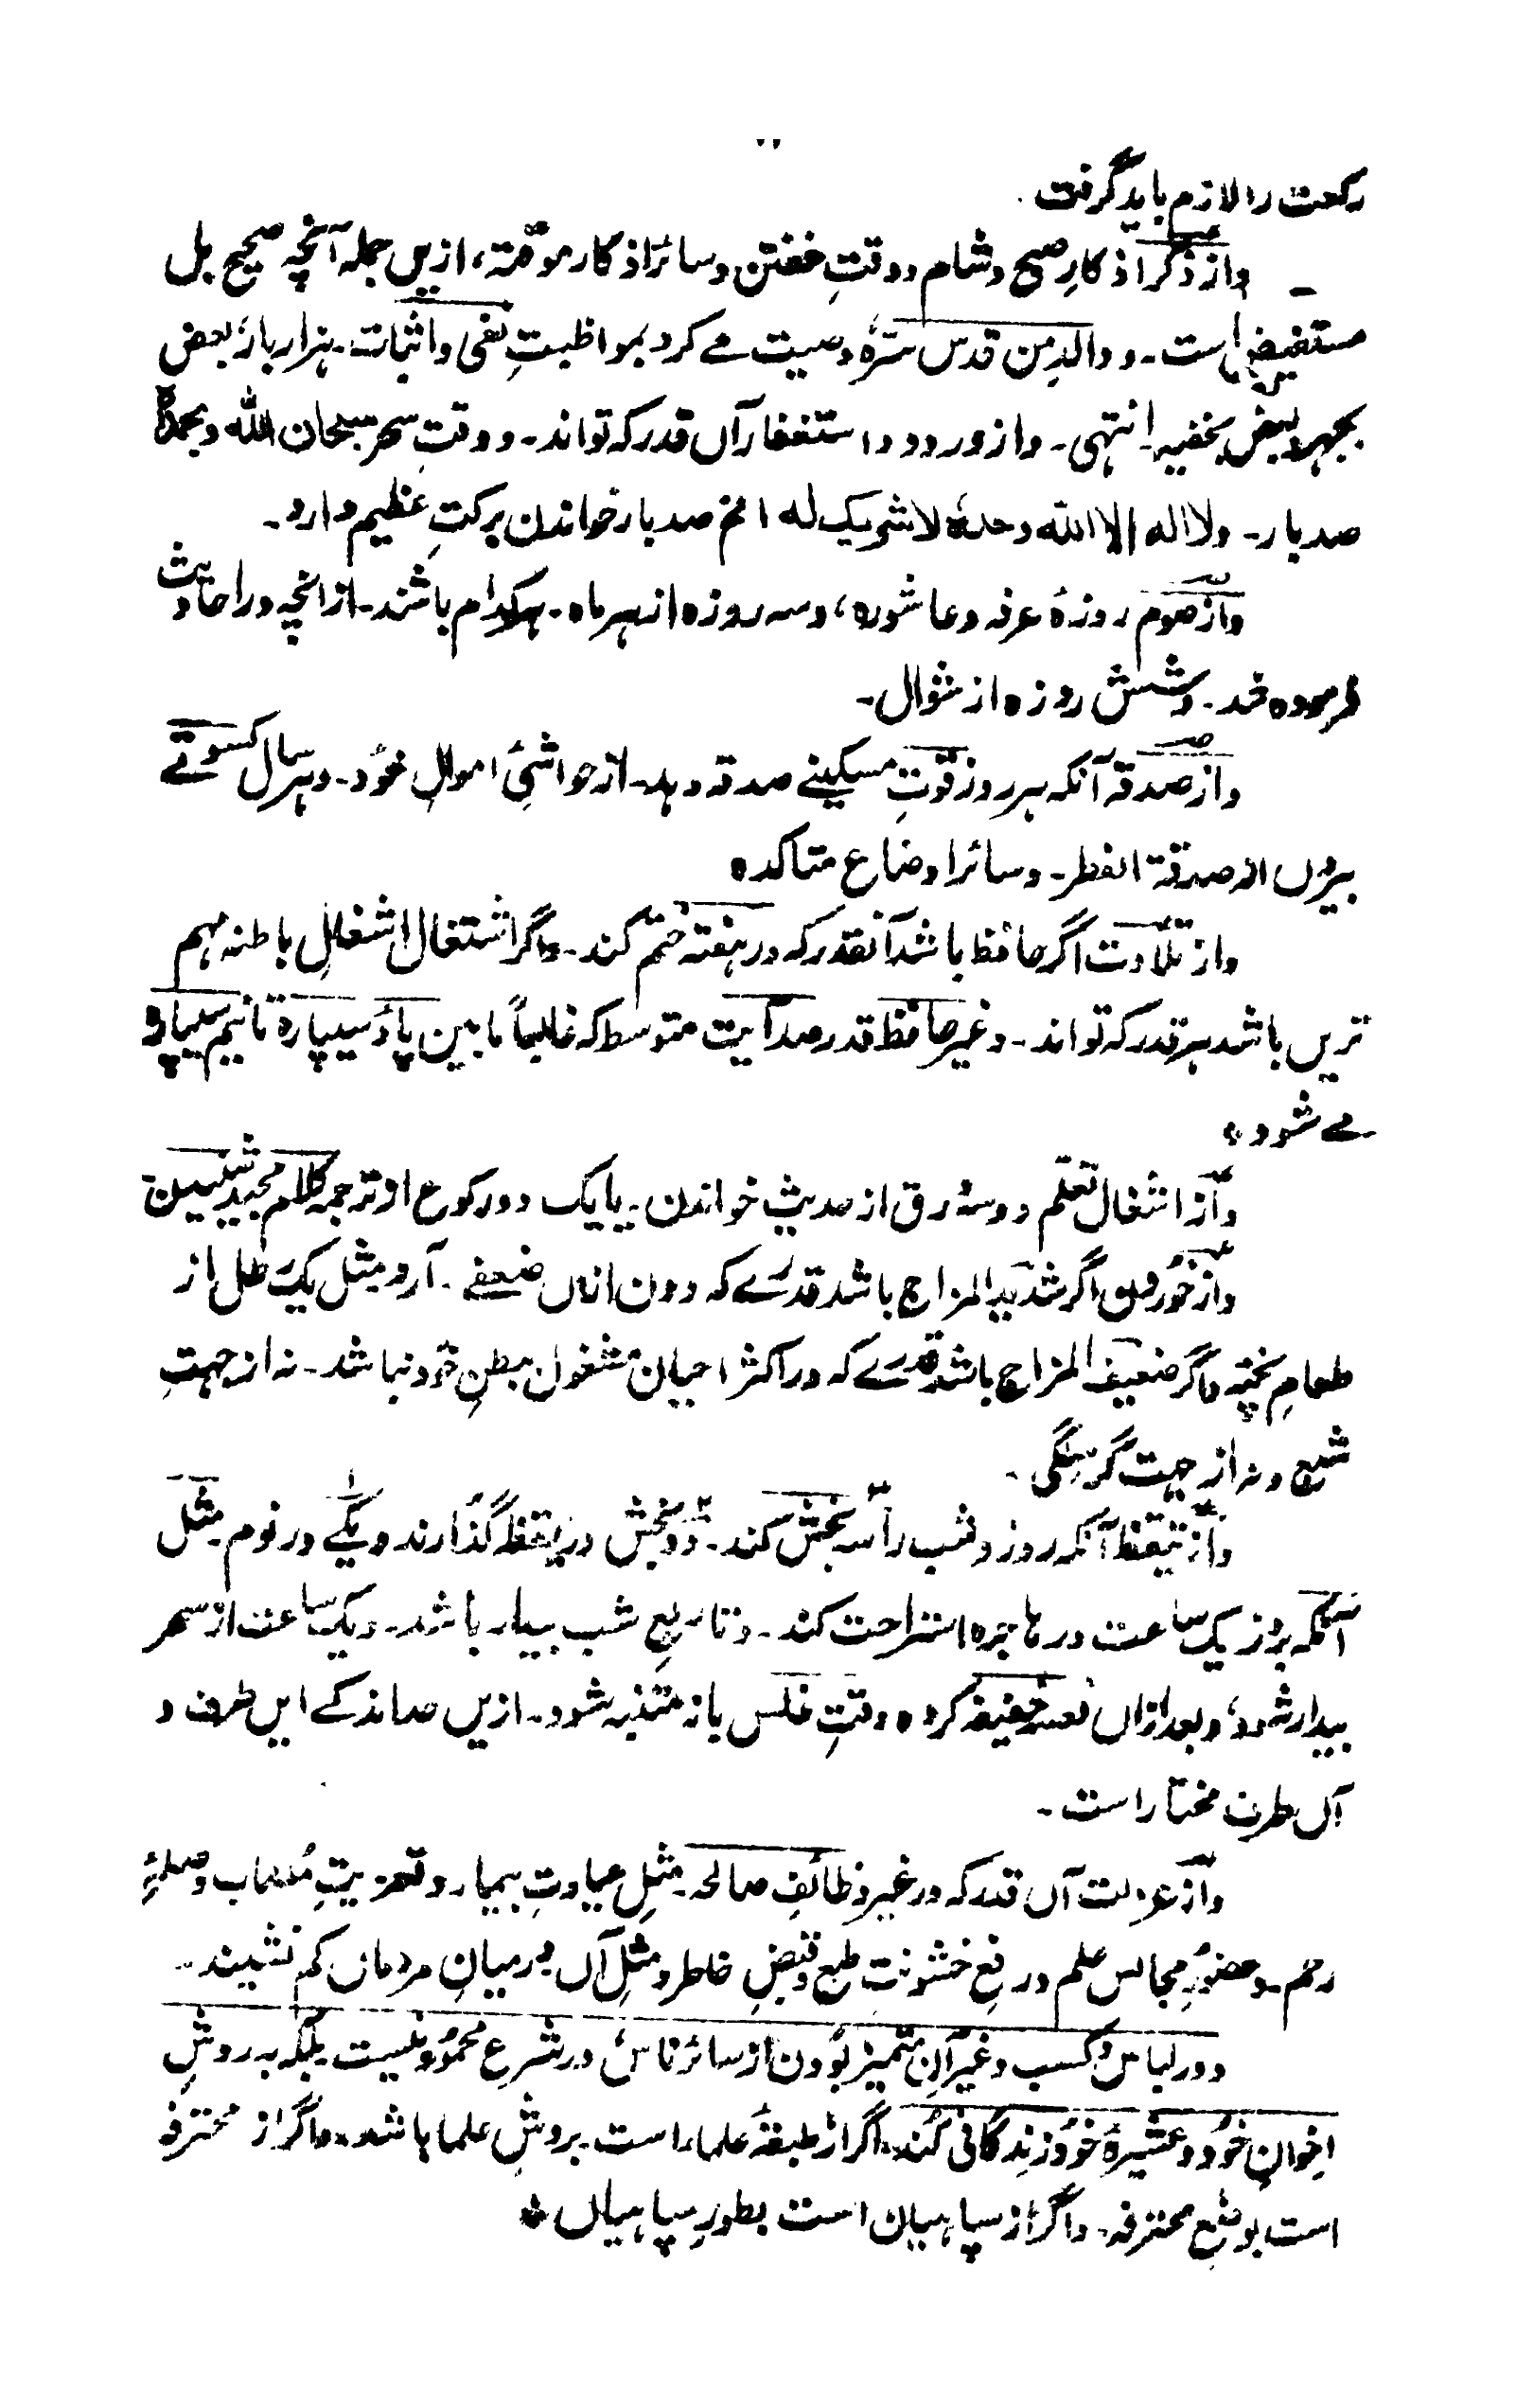 ۲۲
رکعت را لازم باید گرفت۔
واز ذکر اذکارِ صبح وشام ووقتِ خفتن وسائر اذکار موقتہ، ازیں جملہ آنچہ صحیح بل
مستفیض است۔ ووالدِ من قدس سرّہٗ وصیت مے کرد بمواظبتِ نفی واثبات۔ ہزار بار، بعض
بجہر وبعض بخفیہ۔ انتہی۔ واز درود واستغفار آں قدر کہ تواند۔ ووقتِ سحر سبحان اللہ وبحمدہٖ
صدبار۔ ولا الہ الا اللہ وحدہٗ لا شریک لہ الخ صدبار خواندن برکتِ عظیم دارد۔
واز صوم روزۂ عرفہ وعاشورہ، وسہ روزہ از ہر ماہ۔ ہر کدام باشند۔ ازانچہ در احادیث
فرمودہ شد۔ وشش روزہ از شوال۔
واز صدقہ آنکہ ہر روز قوتِ مسکینے صدقہ دہد۔ از حواشیٔ اموالِ خود۔ وہر سال کسوتے
بیروں از صدقۃ الفطر۔ وسائر اوضاع متاکدہ
واز تلاوت اگر حافظ باشد آنقدر کہ در ہفتہ ختم کند۔ واگر اشتغال اشغالِ باطنہ مہم
تریں باشد ہر قدر کہ تواند۔ وغیر حافظ قدر صد آیت متوسط کہ غالباً مابین پاؤ سیپارہ تا نیم سیپارہ
مے شود۔
واز اشغال تعلم دو سہ ورق از حدیث خواندن۔ یا یک دو رکوع از ترجمہ کلام مجید شنیدن
واز خوردن اگر شدید المزاج باشد قدرے کہ دون ازاں ضعفے۔ آرد مثل یک رطل از
طعامِ پختہ واگر ضعیف المزاج باشد قدرے کہ در اکثر احیان مشغول ببطنِ خود نباشد۔ نہ از جہتِ
شبع ونہ از جہت گرسنگی۔
واز تیقظ آنکہ روز وشب را سہ بخش کند۔ دو بخش در یقظہ گذارند ویکے در نوم۔ مثل
آنکہ بروز یک ساعت در ہاجرہ استراحت کند۔ وتا ربعِ شب بیدار باشد۔ ویک ساعت از سحر
بیدار شود، وبعد ازاں نعسہ خفیفہ کردہ وقتِ غلس باز متنبہ شود۔ ازیں صد اندکے ایں طرف و
آں طرف مختار است۔
واز عزلت آں قدر کہ در غیر وظائفِ صالحہ۔ مثلِ عیادتِ بیمار وتعزیتِ مصاب وصلۂ
رحم۔ وحضورِ مجالس علم ورفع خشونت طبع وقبضِ خاطر ومثلِ آں درمیانِ مردماں کم نشیند۔
ودر لباس وکسب وغیر آں متمیز بودن از سائر ناس در شرع محمود نیست بلکہ بہ روشِ
اخوانِ خود وعشیرۂ خود زندگانی کند۔ اگر از طبقۂ علماء است بروشِ علما باشد۔ واگر از محترفہ
است بوضعِ محترفہ۔ واگر از سپاہیان است بطورِ سپاہیاں